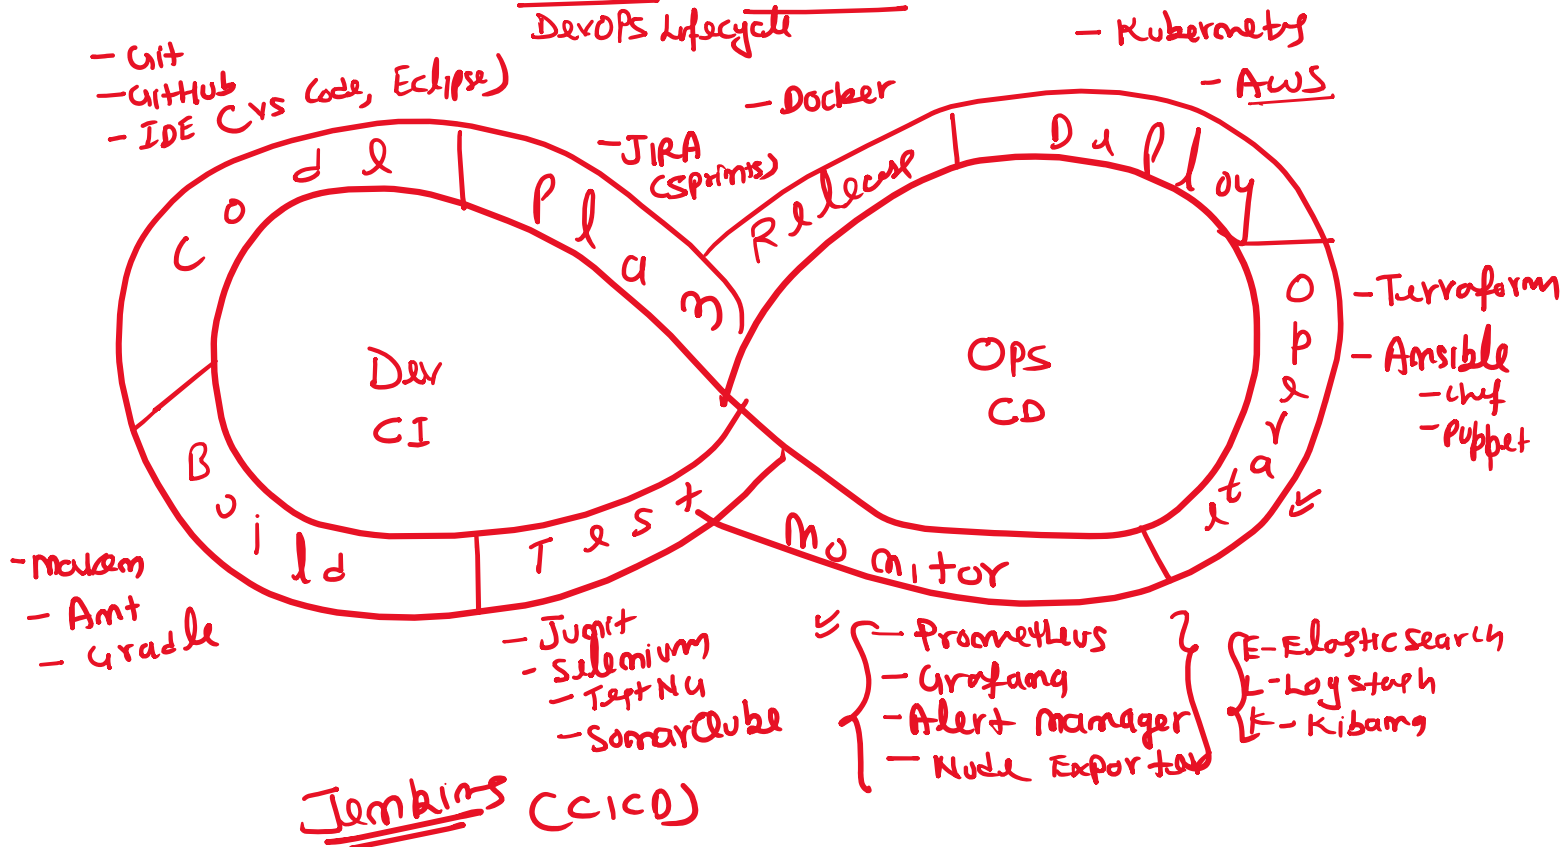 DevOPS Lifecycle
- Git
- GitHub
- IDE (vs Code, Eclipse)
- JIRA
(Sprints)
- Docker
- Kubernetes
- AWS
Code
Plan
Release
Deploy
Operate
Monitor
Test
Build
Dev
CI
OPS
CD
- Terraform
- Ansible
- Chef
- Puppet
- Maven
- Ant
- Gradle
- Junit
- Selenium
- TestNG
- SonarQube
- Prometheus
- Grafana
- Alert manager
- Node Exporter
E - Elasticsearch
L - Logstash
K - Kibana
Jenkins (CICD)